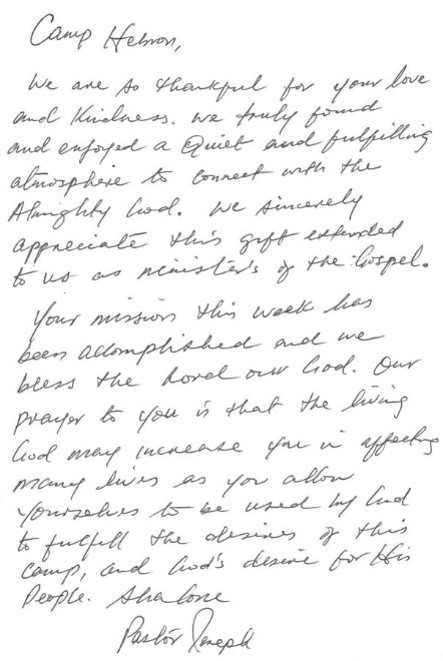 Camp Hebron,
We are so thankful for your love
and Kindness. We truly found
and enjoyed a Quiet and fulfilling
atmosphere to connect with the
Almighty God. We sincerely
appreciate this gift extended
to us as minister's of the Gospel.
Your mission this week has
been accomplished and we
bless the Lord our God. Our
prayer to you is that the living
God may increase you in affecting
many lives as you allow
yourselves to be used by God
to fulfill the desires of this
camp, and God's desire for His
People.
Pastor Joseph